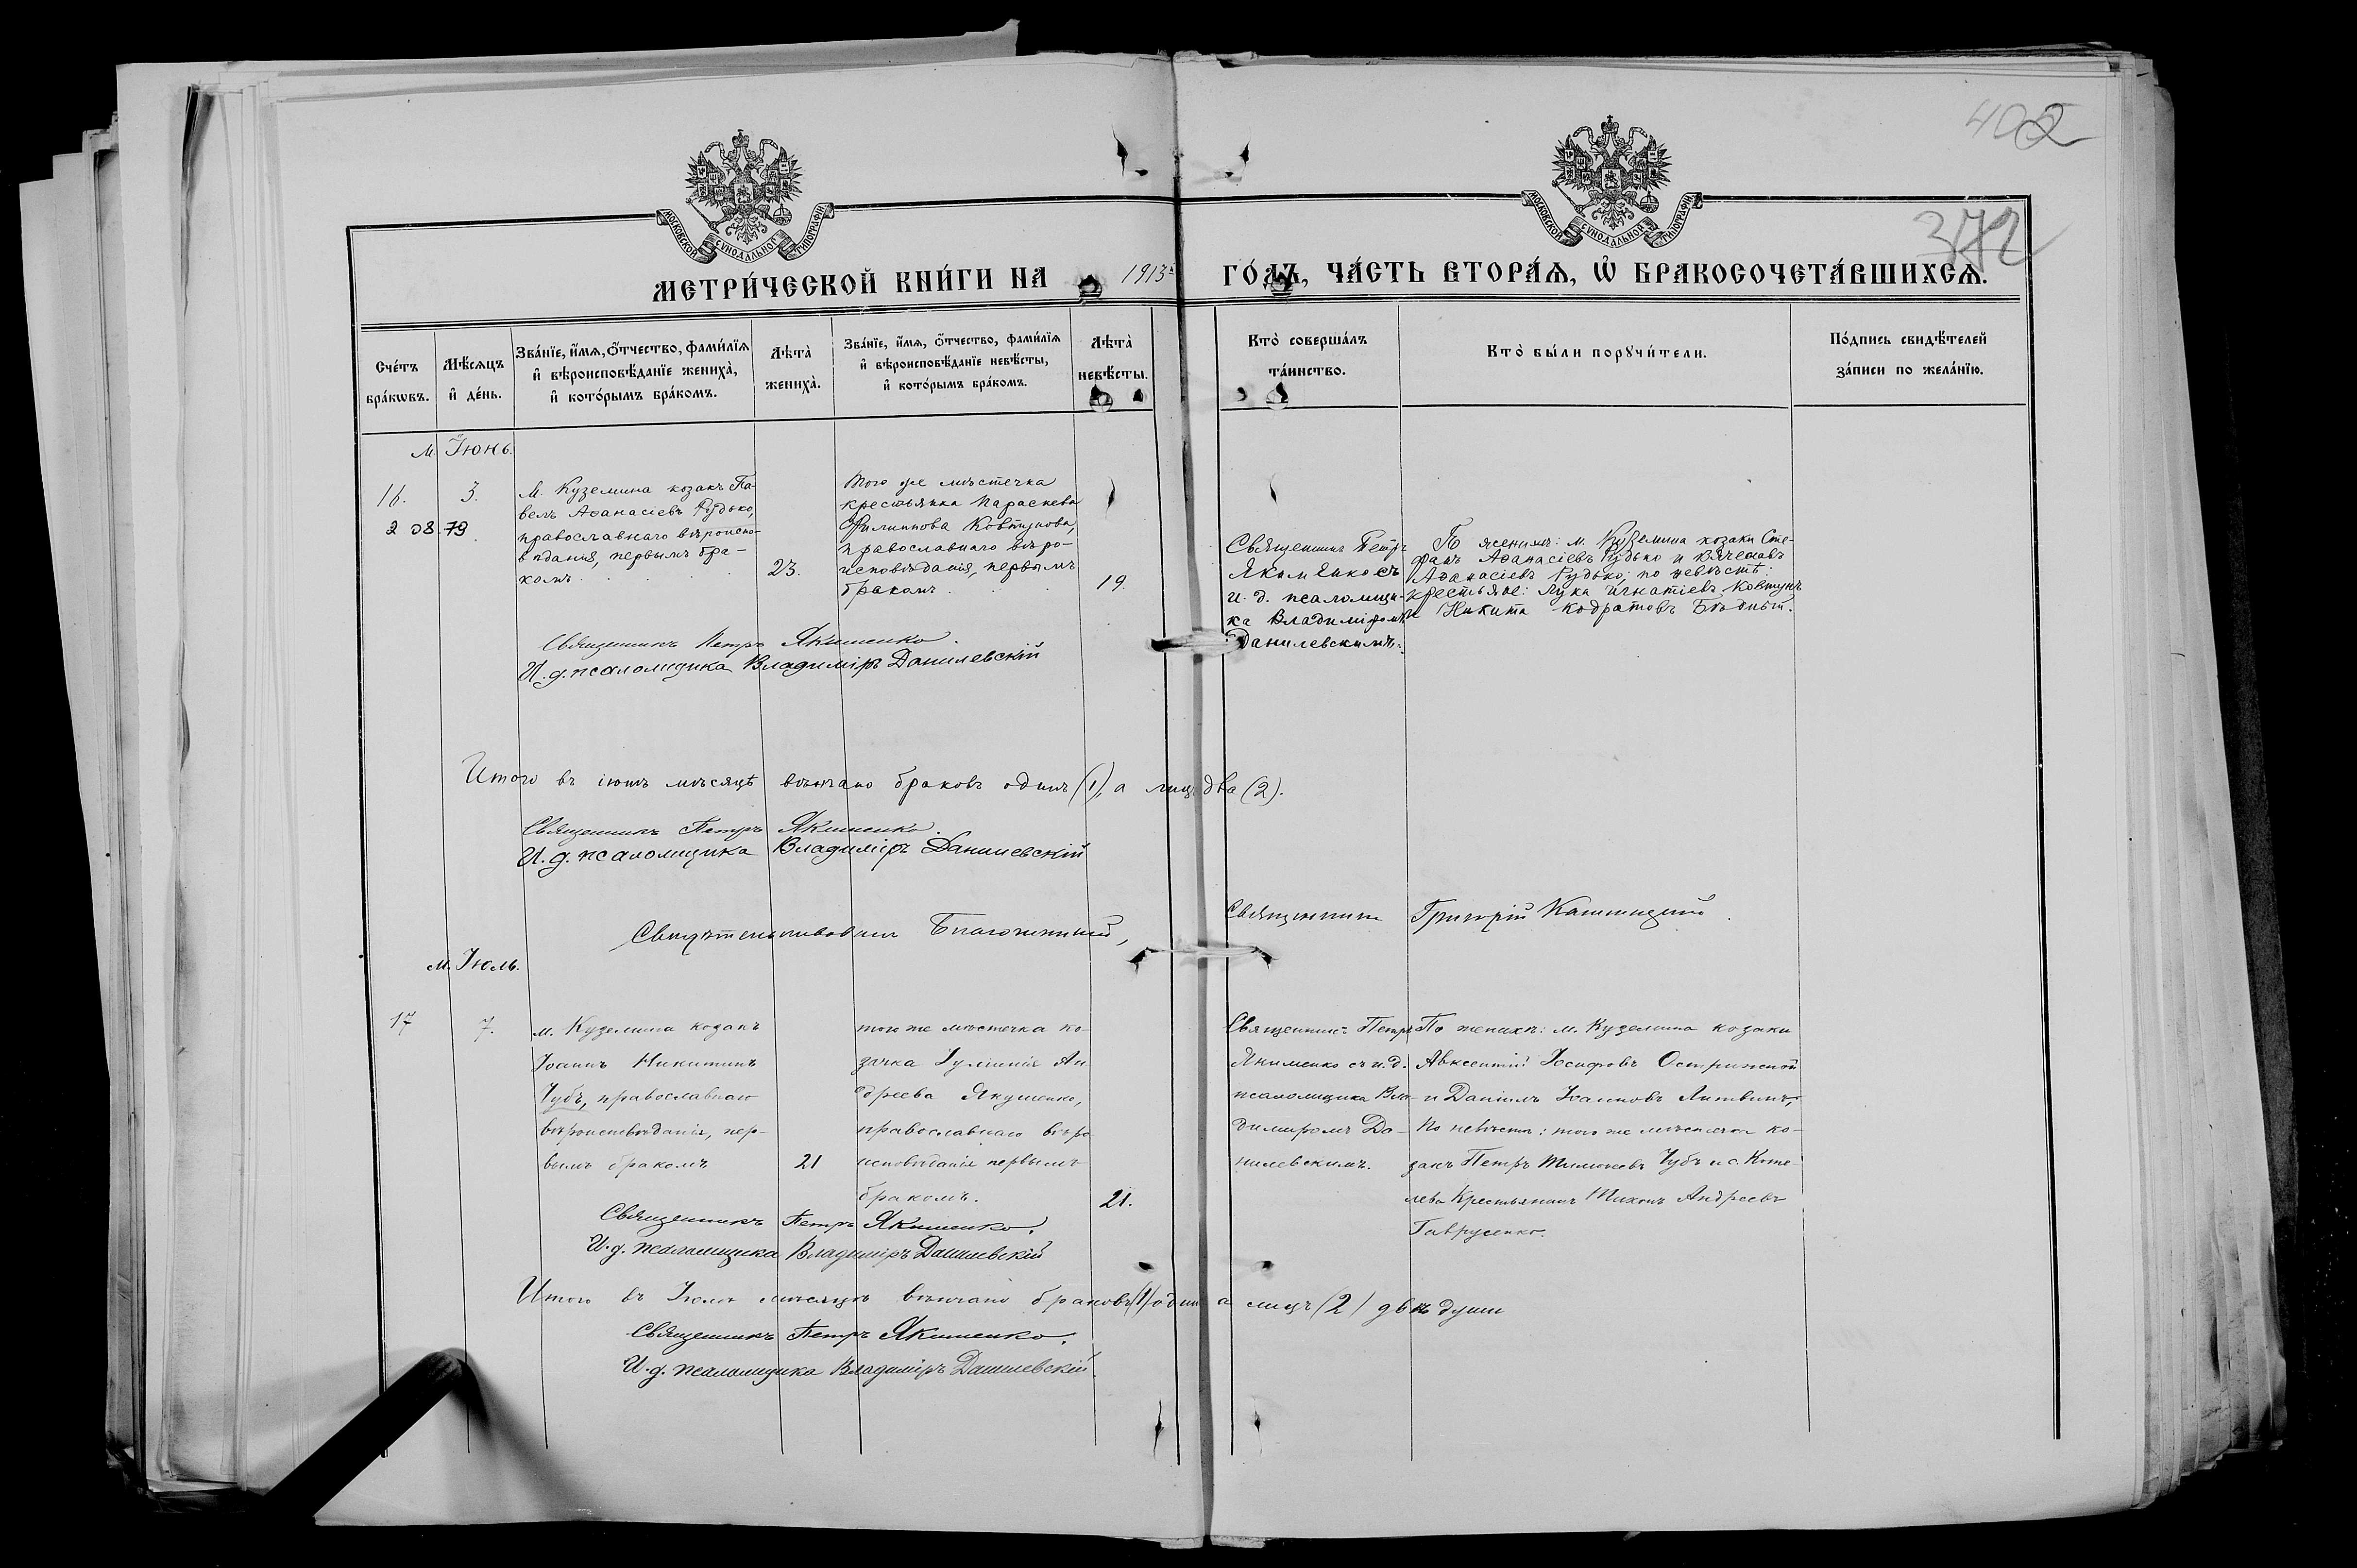 402
372
МОСКОВСКОЙ СѴНОДАЛЬНОЙ ТИПОГРАФІИ
МОСКОВСКОЙ СѴНОДАЛЬНОЙ ТИПОГРАФІИ
МЕТРИ́ЧЕСКОЙ КНИ́ГИ НА 1913 ГО́ДЪ, ЧА́СТЬ ВТОРА́Ѧ, Ѽ БРАКОСОЧЕТА́ВШИХСѦ.
Сче́тъ
бра́кѡвъ.
Мѣ́сѧцъ
и҆ де́нь.
Зва́нїе, и҆́мѧ, ѻ҆́тчество, фами́лїѧ
и҆ вѣроисповѣ́данїе жениха̀,
и҆ кото́рымъ бра́комъ.
Лѣта̀
жениха̀.
Зва́нїе, и҆́мѧ, ѻ҆́тчество, фами́лїѧ
и҆ вѣроисповѣ́данїе невѣ́сты,
и҆ кото́рымъ бра́комъ.
Лѣта̀
невѣ́сты.
Кто̀ соверша́лъ
та́инство.
Кто̀ бы́ли порꙋчи́тели.
По́дпись свидѣ́телей
за́писи по жела́нїю.
М. Іюнь.
16.
3.
М. Куземина козакъ Па-
велъ Аѳанасіевъ Рудько,
православнаго вѣроиспо-
вѣданія, первымъ бра-
комъ
23.
Того же мѣстечка
крестьянка Параскева
Филиппова Ковтунова,
православнаго вѣро-
исповѣданія, первымъ
бракомъ.
19.
Священникъ Петръ
Якименко съ
и. д. псаломщи-
ка Владиміромъ
Данилевскимъ.
По женихѣ: м. Куземина козаки Сте-
фанъ Аѳанасіевъ Рудько и Вячеславъ
Аѳанасіевъ Рудько; по невѣстѣ:
крестьяне: Лука Игнатіевъ Ковтунъ
и Никита Кодратовъ Бѣдный.
Священникъ Петръ Якименко.
И. д. псаломщика Владиміръ Данилевскій
Итого въ іюнѣ мѣсяцѣ вѣнчано браковъ одинъ (1), а лицъ два (2).
Священникъ Петръ Якименко.
И. д. псаломщика Владиміръ Данилевскій
Свидѣтельствовалъ Благочинный, Священникъ Григорій
м. Іюль.
17
7.
м. Куземина козакъ
Іоаннъ Никитинъ
Чубъ, православнаго
вѣроисповѣданія, пер-
вымъ бракомъ
21
того же мѣстечка ко-
зачка Іуліанія Ан
дреева Якушенко,
православнаго вѣро
исповѣданія первымъ
бракомъ.
21.
Священникъ Петръ
Якименко съ и. д.
псаломщика Вла-
димиромъ Да-
нилевскимъ.
По женихѣ: м. Куземина козаки
Авксентій Іосифовъ Острижной
и Даніилъ Іоанновъ Литвинъ,
По невѣстѣ: того же мѣстечка ко-
закъ Петръ Тимоѳеевъ Чубъ и с. Коте-
лева Крестьянинъ Тихонъ Андреевъ
Гаврусенко.
Священникъ Петръ Якименко.
И. д. псаломщика Владиміръ Данилевскій
Итого въ Іюлѣ мѣсяцѣ вѣнчано браковъ (1) одинъ а лицъ (2) двѣ души
Священникъ Петръ Якименко.
И. д. псаломщика Владиміръ Данилевскій.